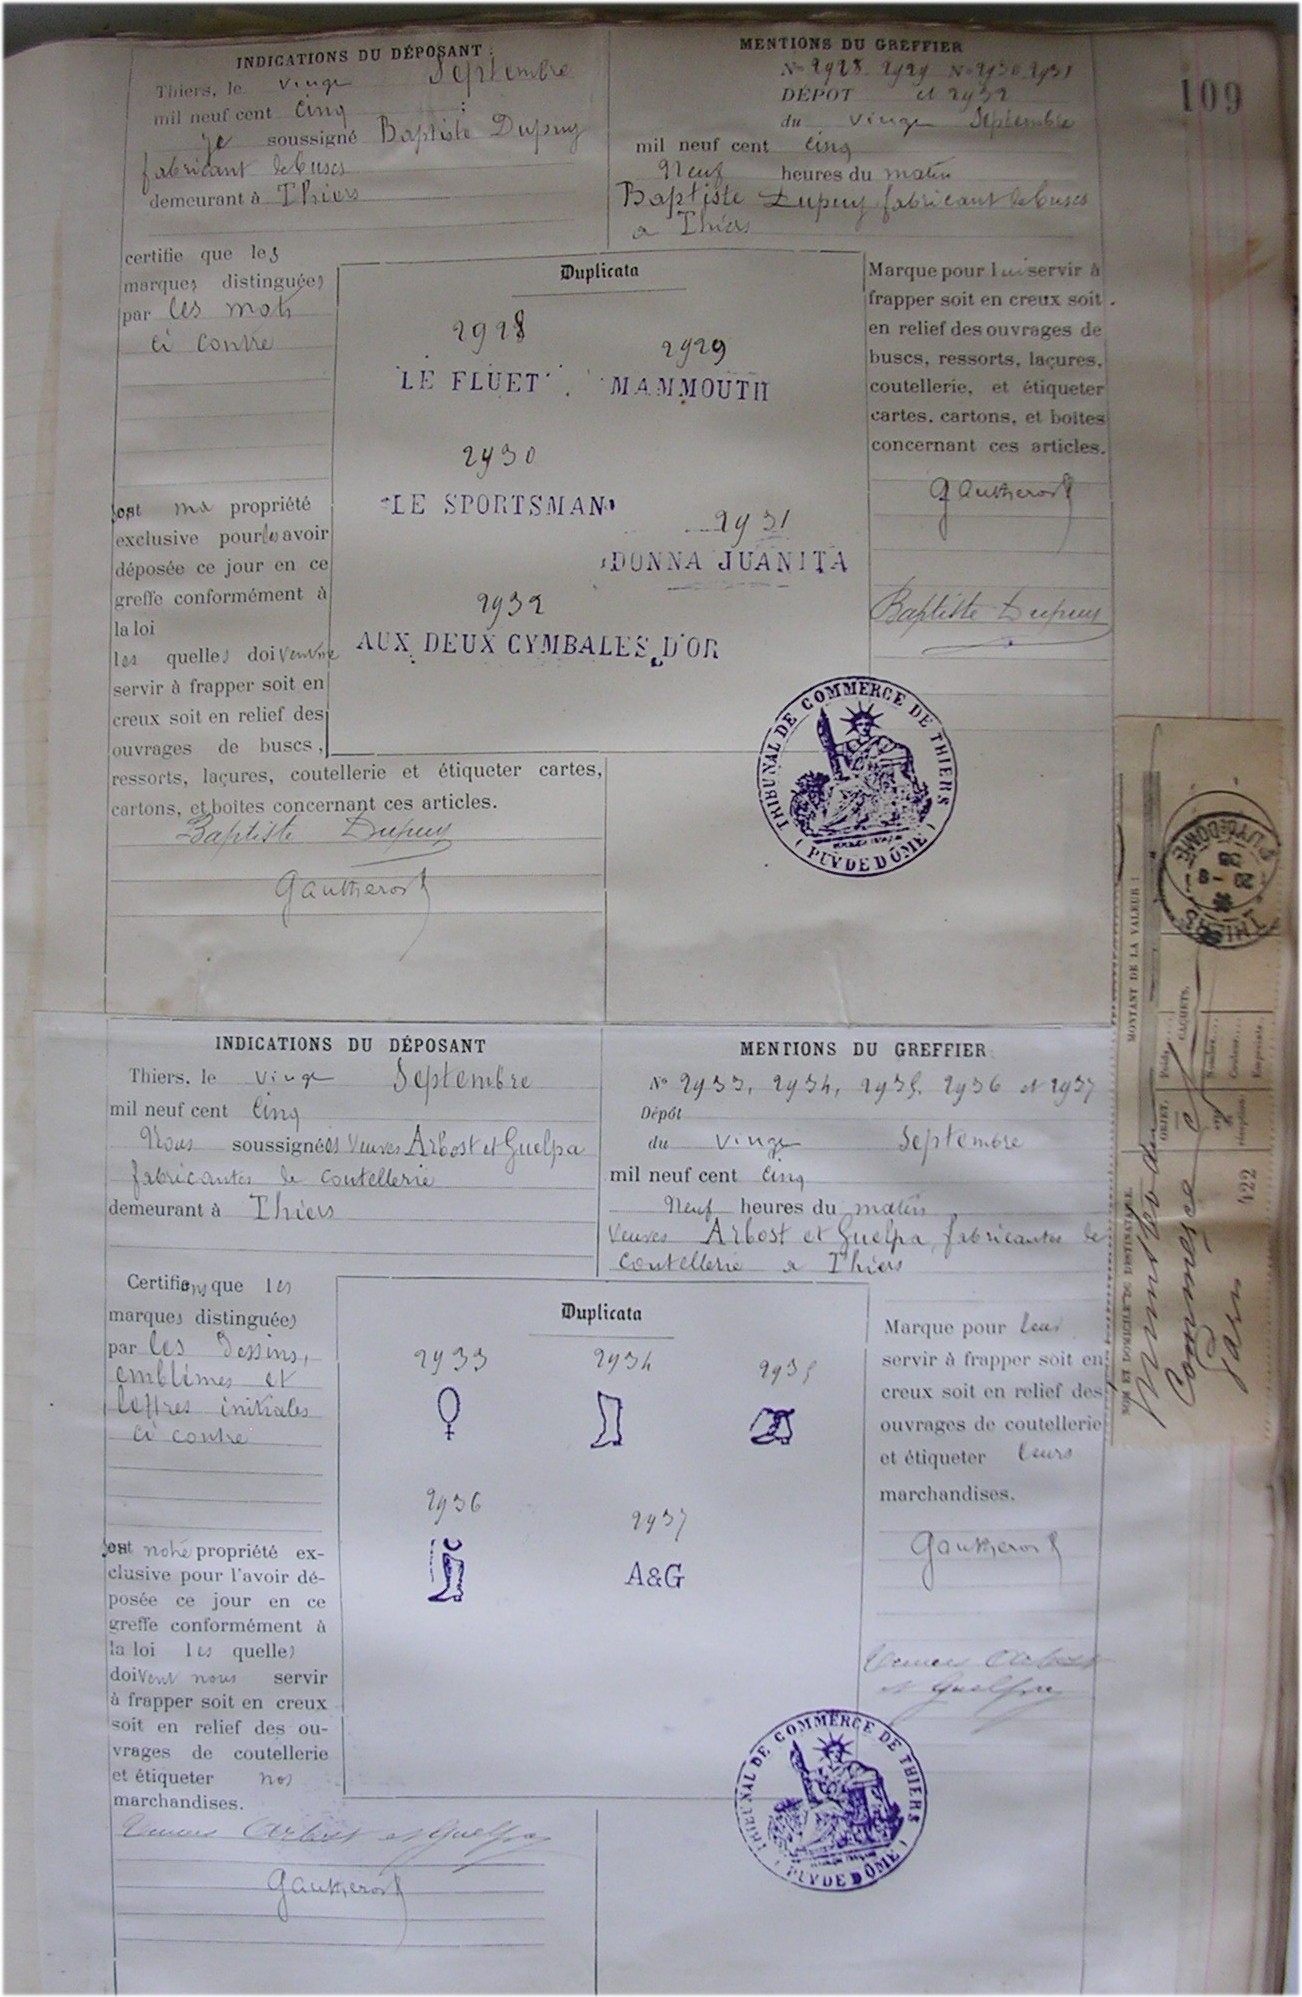 109
INDICATIONS DU DÉPOSANT :
Thiers, le vingt Septembre
mil neuf cent cinq
je soussigné Baptiste Dupuy
fabricant de buscs
demeurant à Thiers
certifie que les
marques distinguées
par les mots
ci contre
sont ma propriété
exclusive pour les avoir
déposée ce jour en ce
greffe conformément à
la loi
les quelles doivent me
servir à frapper soit en
creux soit en relief des
ouvrages de buscs,
ressorts, laçures, coutellerie et étiqueter cartes,
cartons, et boîtes concernant ces articles.
Baptiste Dupuy
Gautherot
MENTIONS DU GREFFIER
Nos 2928. 2929 No 2930 2931
DÉPOT et 2932
du vingt Septembre
mil neuf cent cinq
Neuf heures du matin
Baptiste Dupuy fabricant de buscs
a Thiers
Duplicata
2928
LE FLUET
2929
MAMMOUTH
2930
LE SPORTSMAN
2931
DONNA JUANITA
2932
AUX DEUX CYMBALES D'OR
Marque pour lui servir à
frapper soit en creux soit
en relief des ouvrages de
buscs, ressorts, laçures,
coutellerie, et étiqueter
cartes. cartons, et boîtes
concernant ces articles.
Gautherot
Baptiste Dupuy
TRIBUNAL DE COMMERCE DE THIERS
( PUY DE DÔME )
INDICATIONS DU DÉPOSANT
Thiers, le vingt Septembre
mil neuf cent cinq
Nous soussignées Veuves Arbost et Guelpa
fabricantes de coutellerie
demeurant à Thiers
Certifions que les
marques distinguées
par les dessins,
emblèmes et
lettres initiales
ci contre
sont notre propriété ex-
clusive pour l'avoir dé-
posée ce jour en ce
greffe conformément à
la loi les quelles
doivent nous servir
à frapper soit en creux
soit en relief des ou-
vrages de coutellerie
et étiqueter nos
marchandises.
Veuves Arbost et Guelpa
Gautherot
MENTIONS DU GREFFIER
No 2933, 2934, 2935, 2936 et 2937
Dépôt
du vingt Septembre
mil neuf cent cinq
Neuf heures du matin
Veuves Arbost et Guelpa, fabricantes de
coutellerie a Thiers
Duplicata
2933
2934
2935
2936
2937
A&G
Marque pour leur
servir à frapper soit en
creux soit en relief des
ouvrages de coutellerie
et étiqueter leurs
marchandises.
Gautherot
Veuves Arbost
et Guelpa
TRIBUNAL DE COMMERCE DE THIERS
( PUY DE DÔME )
MONTANT DE LA VALEUR :
OBJET.
Poids
CACHETS.
Nombre
Couleur
Empreinte
NOM ET DOMICILE DU DESTINATAIRE.
Commerce
Paris
422
THIERS
PUY-DE-DOME